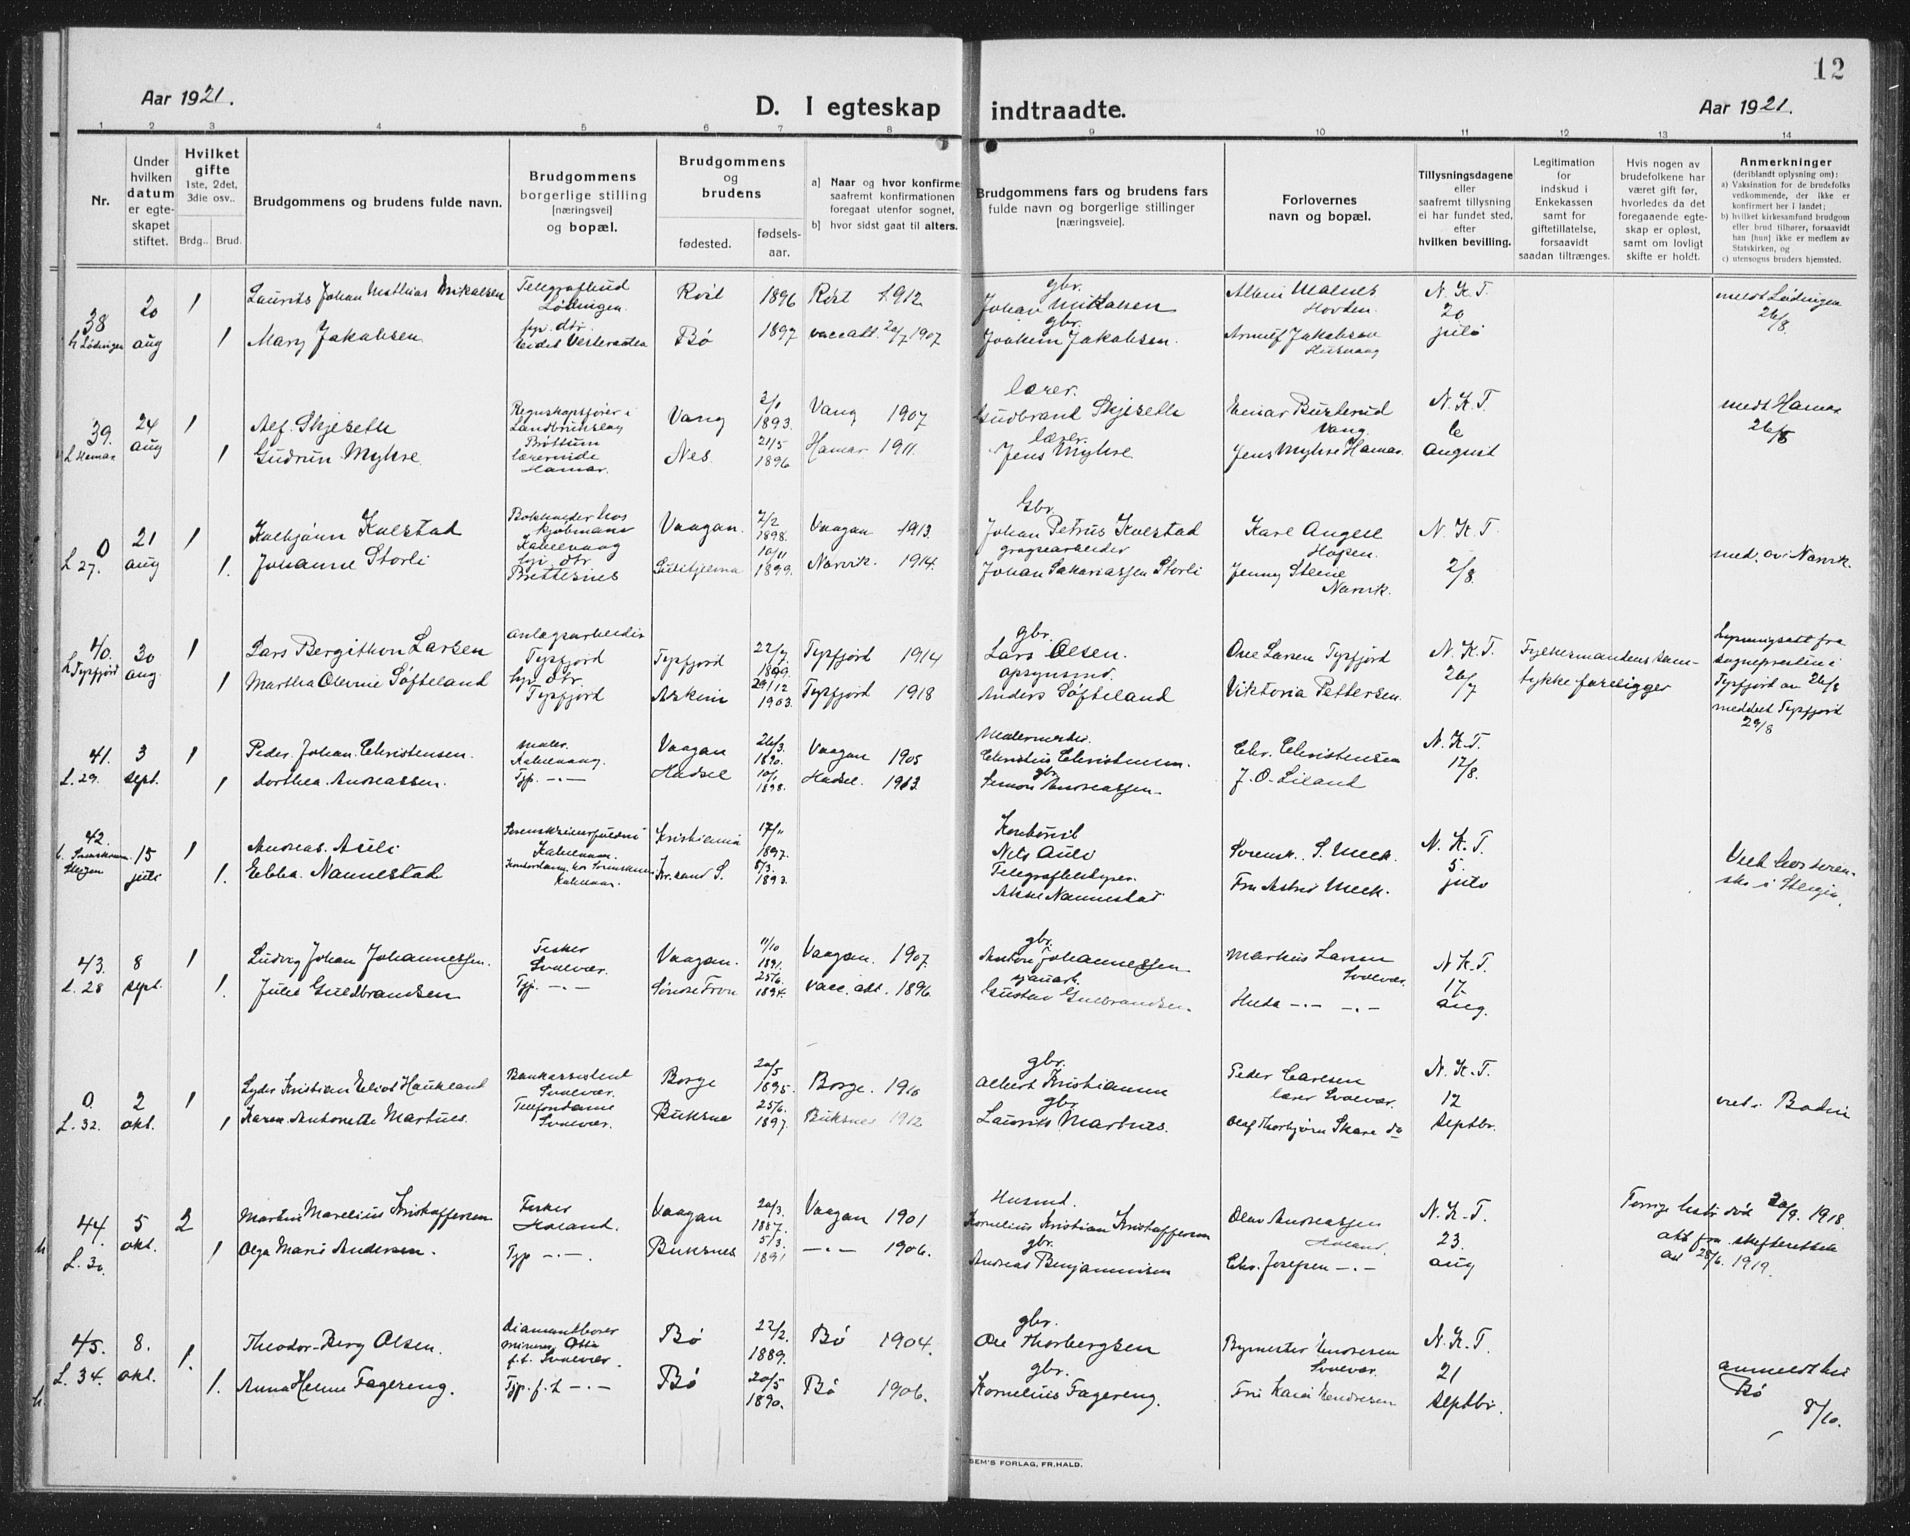 12
Aar 1921.
D. I egteskap indtraadte.
Aar 1921.
1 2 3 4 5 6 7 8 9 10 11 12 13 14
Nr.
Under hvilken datum er egteskapet stiftet.
Hvilket gifte 1ste, 2det, 3die osv..
Brdg.. Brud.
Brudgommens og brudens fulde navn.
Brudgommens borgerlige stilling [næringsvei] og bopæl.
Brudgommens og brudens
fødested. fødsels-aar.
a] Naar og hvor konfirme saafremt konfirmationen foregaat utenfor sognet,
b] hvor sidst gaat til alters.
Brudgommens fars og brudens fars fulde navn og borgerlige stillinger [næringsveiej.
Forlovernes navn og bopæl.
Tillysningsdagene eller saafremt tillysning ei har fundet sted, efter hvilken bevilling.
Legitimation for indskud i Enkekassen samt for giftetillatelse, forsaavidt saadan tiltrænges.
Hvis nogen av brudefolkene har været gift før, hvorledes da det foregaaende egteskap er opløst, samt om lovligt skifte er holdt.
Anmerkninger (deriblandt oplysning om):
a) Vaksination for de brudefolks vedkommende, der ikke er konfirmert her i landet;
b) hvilket kirkesamfund brudgom eller brud tilhører, forsaavidt han [hun] ikke er medlem av Statskirken, og
c) utensogns bruders hjemsted.
38 20 aug 1 Laurits Johan Mathias Mikalsen Telegrafbud Lødingen. Røst 1896 Røst 1912 gbr. Johan Mikalsen Albin Malnes Hovden. N.K.T. 20 juli meldt Lødingen 26/8.
L Lødingen 1 Mary Jakobsen Eidet Vesteraalen Bø 1897 vaccatt. 20/7 1907 gbr. Joakim Jakobsen. Arnulf Jakobsen
39. 24 aug 1 Alf. Skjeseth Regnskapsfører i Landbrukslag Brøttum Vang 2/1 1893. Vang 1907 lærer. Gudbrand Skjeseth Einar Vang. N.K.T. 6 August meldt Hamar 26/8
L Hamar 1 Gudrun Myhre. lærerinde Hamar. Nes 21/5 1896 Hamar 1911. lærer. Jens Myhre Jens Myhre Hamar.
0 21 aug 1 Kolbjørn Kulstad Bokholder hos kjøbmand Kabelvaag Vaagan. 7/2 1898. Vaagan 1913. Gbr. Johan Petrus Kulstad Karl Angell Hopen. N.K.T. 2/8.
L 27. 1. Johanne Storli Brettesnes Sulitjelma 10/11 1899. Narvik. 1914. Johan Sakariassen Storli Jenny Steene Narvik. med. av Narvik.
40. 30 aug. 1 Lars Bergithon Larsen Anlægsarbeider Tysfjord Tysfjord 22/7 1899. Tysfjord 1914 gbr. Lars Olsen. Ole Larsen Tysfjord N.K.T. 26/7 Fylkesmandens samtykke foreligger
L Tysfjord 1 Martha Olevine Softeland Tysfjord Askim 29/12 1903. Tysfjord 1918 opsynsmd. Anders Softeland Viktoria Pettersen.
Lysningsatt fra sogneprestens i Tysfjord av 26/8 meddelt Tysfjord 29/8
41. 3 sept. 1 Peder Johan Christensen. maler. Kabelvaag. Vaagan 26/3. 1890. Vaagan 1905 Malermester. Christensen. Chr. Christensen N.K.T. 12/8.
L. 29. 1 Dorthea Andreassen. Tjp. -.- Hadsel 10/1 1898. Hadsel. 1913. gbr. Simon Andreassen. J. O. Liland
42. 15 juli 1 Andreas Auli Kabelvaag. Kristiania 17/11 1897. Nils Auli Sorensk. S. Meek. N.K.T. 5. juli
1. Ebba Nannestad Kabelvaag. Kr.sand S. 8/3. 1893. Nannestad Fru Astrid Meek. Viet hos sorensk. i Steigen.
43. 8 sept. 1 Ludvig Johan Johannessen. Fisker Svolvær. Vaagan. 11/10 1891. Vaagan. 1907. gbr. Anton Johannessen. Markus Larsen Svolvær. N.K.T. 17 aug.
L. 28 1. Julie Guldbrandsen Tjp. -.- Søndre Fron 25/6. 1894. Vacc. att. 1896. Gustav Gulbrandsen. Hulda -.- -.-
0. 2 okt. 1 Lyder Kristian Elias Haukland Bankassistent Svolvær. Borge 20/5 1895. Borge. 1910 gbr. Albert Kristiansen Peder Carlsen lærer Svolvær. N.K.T. 12 Septbr.
L. 32. 1 Karen Antonette Martnes. Telefondame Svolvær. Buksnes 25/6. 1897. Buksnes 1912 gbr. Laurits Martnes. Olaf Thorbjørn Skare do viet i Bodin
44. 5 okt. 2 Martin Marelius Kristoffersen Fisker Holand. Vaagan 20/3. 1887. Vaagan 1901 Husmd. Kornelius Kristian Kristoffersen Olav Andreassen Holand. N.K.T. 23. aug Forrige hustr død 20/9. 1918. att fra skifteretten ad 28/6. 1919.
L. 30. 1 Olga Marie Andersen. Tjp -.- Buksnes 5/3. 1891 -.- 1906. gbr. Andreas Benjaminsen Chr. Josefsen -.-
45. 8. okt. 1. Theodor Berg Olsen. diamantborer f.t. Svolvær. Bø 22/2. 1889. Bø 1904. gbr. Ole Thorbergsen Bymester Endresen Svolvær. N.K.T. 21 Septbr. anmeldt hos Bø 8/10.
L. 34. 1. Anna Helene Fagereng. Tjp. f.t. -.- Bø 20/5 1890. Bø 1906. gbr. Kornelius Fagereng. Fru Kaia Endresen
SEM'S FORLAG, FR. HALD.